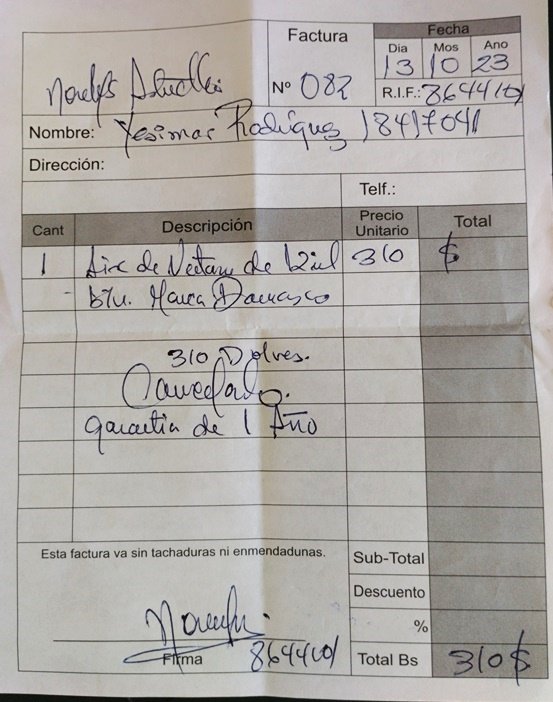 Factura
Fecha
Dia Mos Ano
13 10 23
Nº 082
R.I.F.: 8644101
Nombre: Yesimar Rodriguez 18417041
Dirección:
Telf.:
Cant Descripción Precio Unitario Total
1 Aire de Ventana de 12mil 310 $
btu. Marca Damasco
310 Dolares.
Cancelado.
garantia de 1 Año
Esta factura va sin tachaduras ni enmendadunas.
Sub-Total
Descuento
%
Firma 8644101
Total Bs 310 $